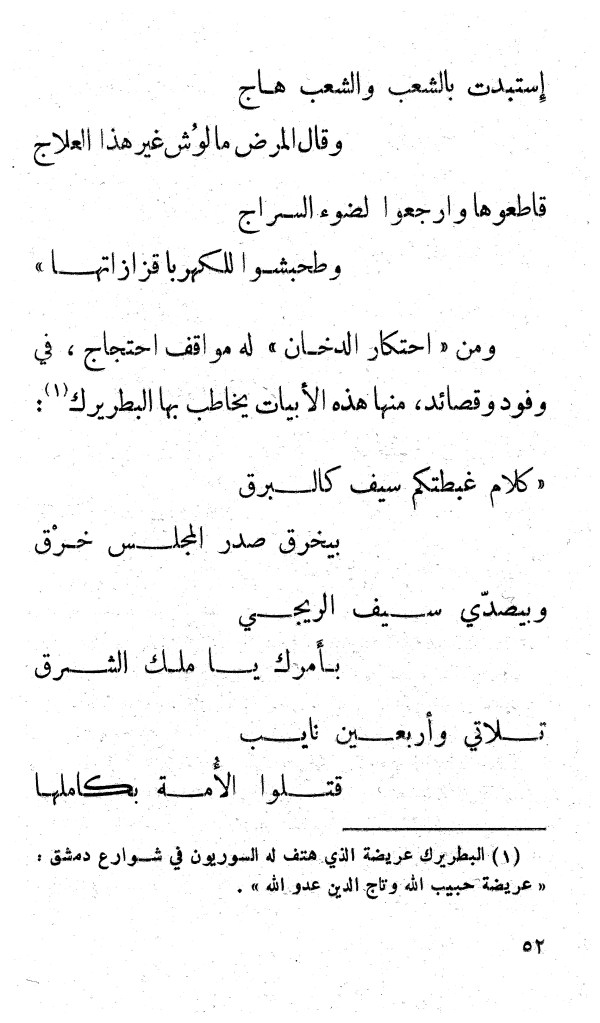 إستبدت بالشعب والشعب هاج
وقال المرض مالوُش غير هذا العلاج
قاطعوها وارجعوا لضوء السراج
وطحبشوا للكهربا قزازاتها »
ومن « احتكار الدخان » له مواقف احتجاج ، في
وفود وقصائد، منها هذه الأبيات يخاطب بها البطريرك(١) :
« كلام غبطتكم سيف كالبرق
بيخرق صدر المجلس خرْق
وبيصدّي سيف الريجي
بأمرك يا ملك الشرق
تلاتي وأربعين نايب
قتلوا الأُمة بكاملها
(١) البطريرك عريضة الذي هتف له السوريون في شوارع دمشق :
« عريضة حبيب الله وتاج الدين عدو الله » .
٥٢